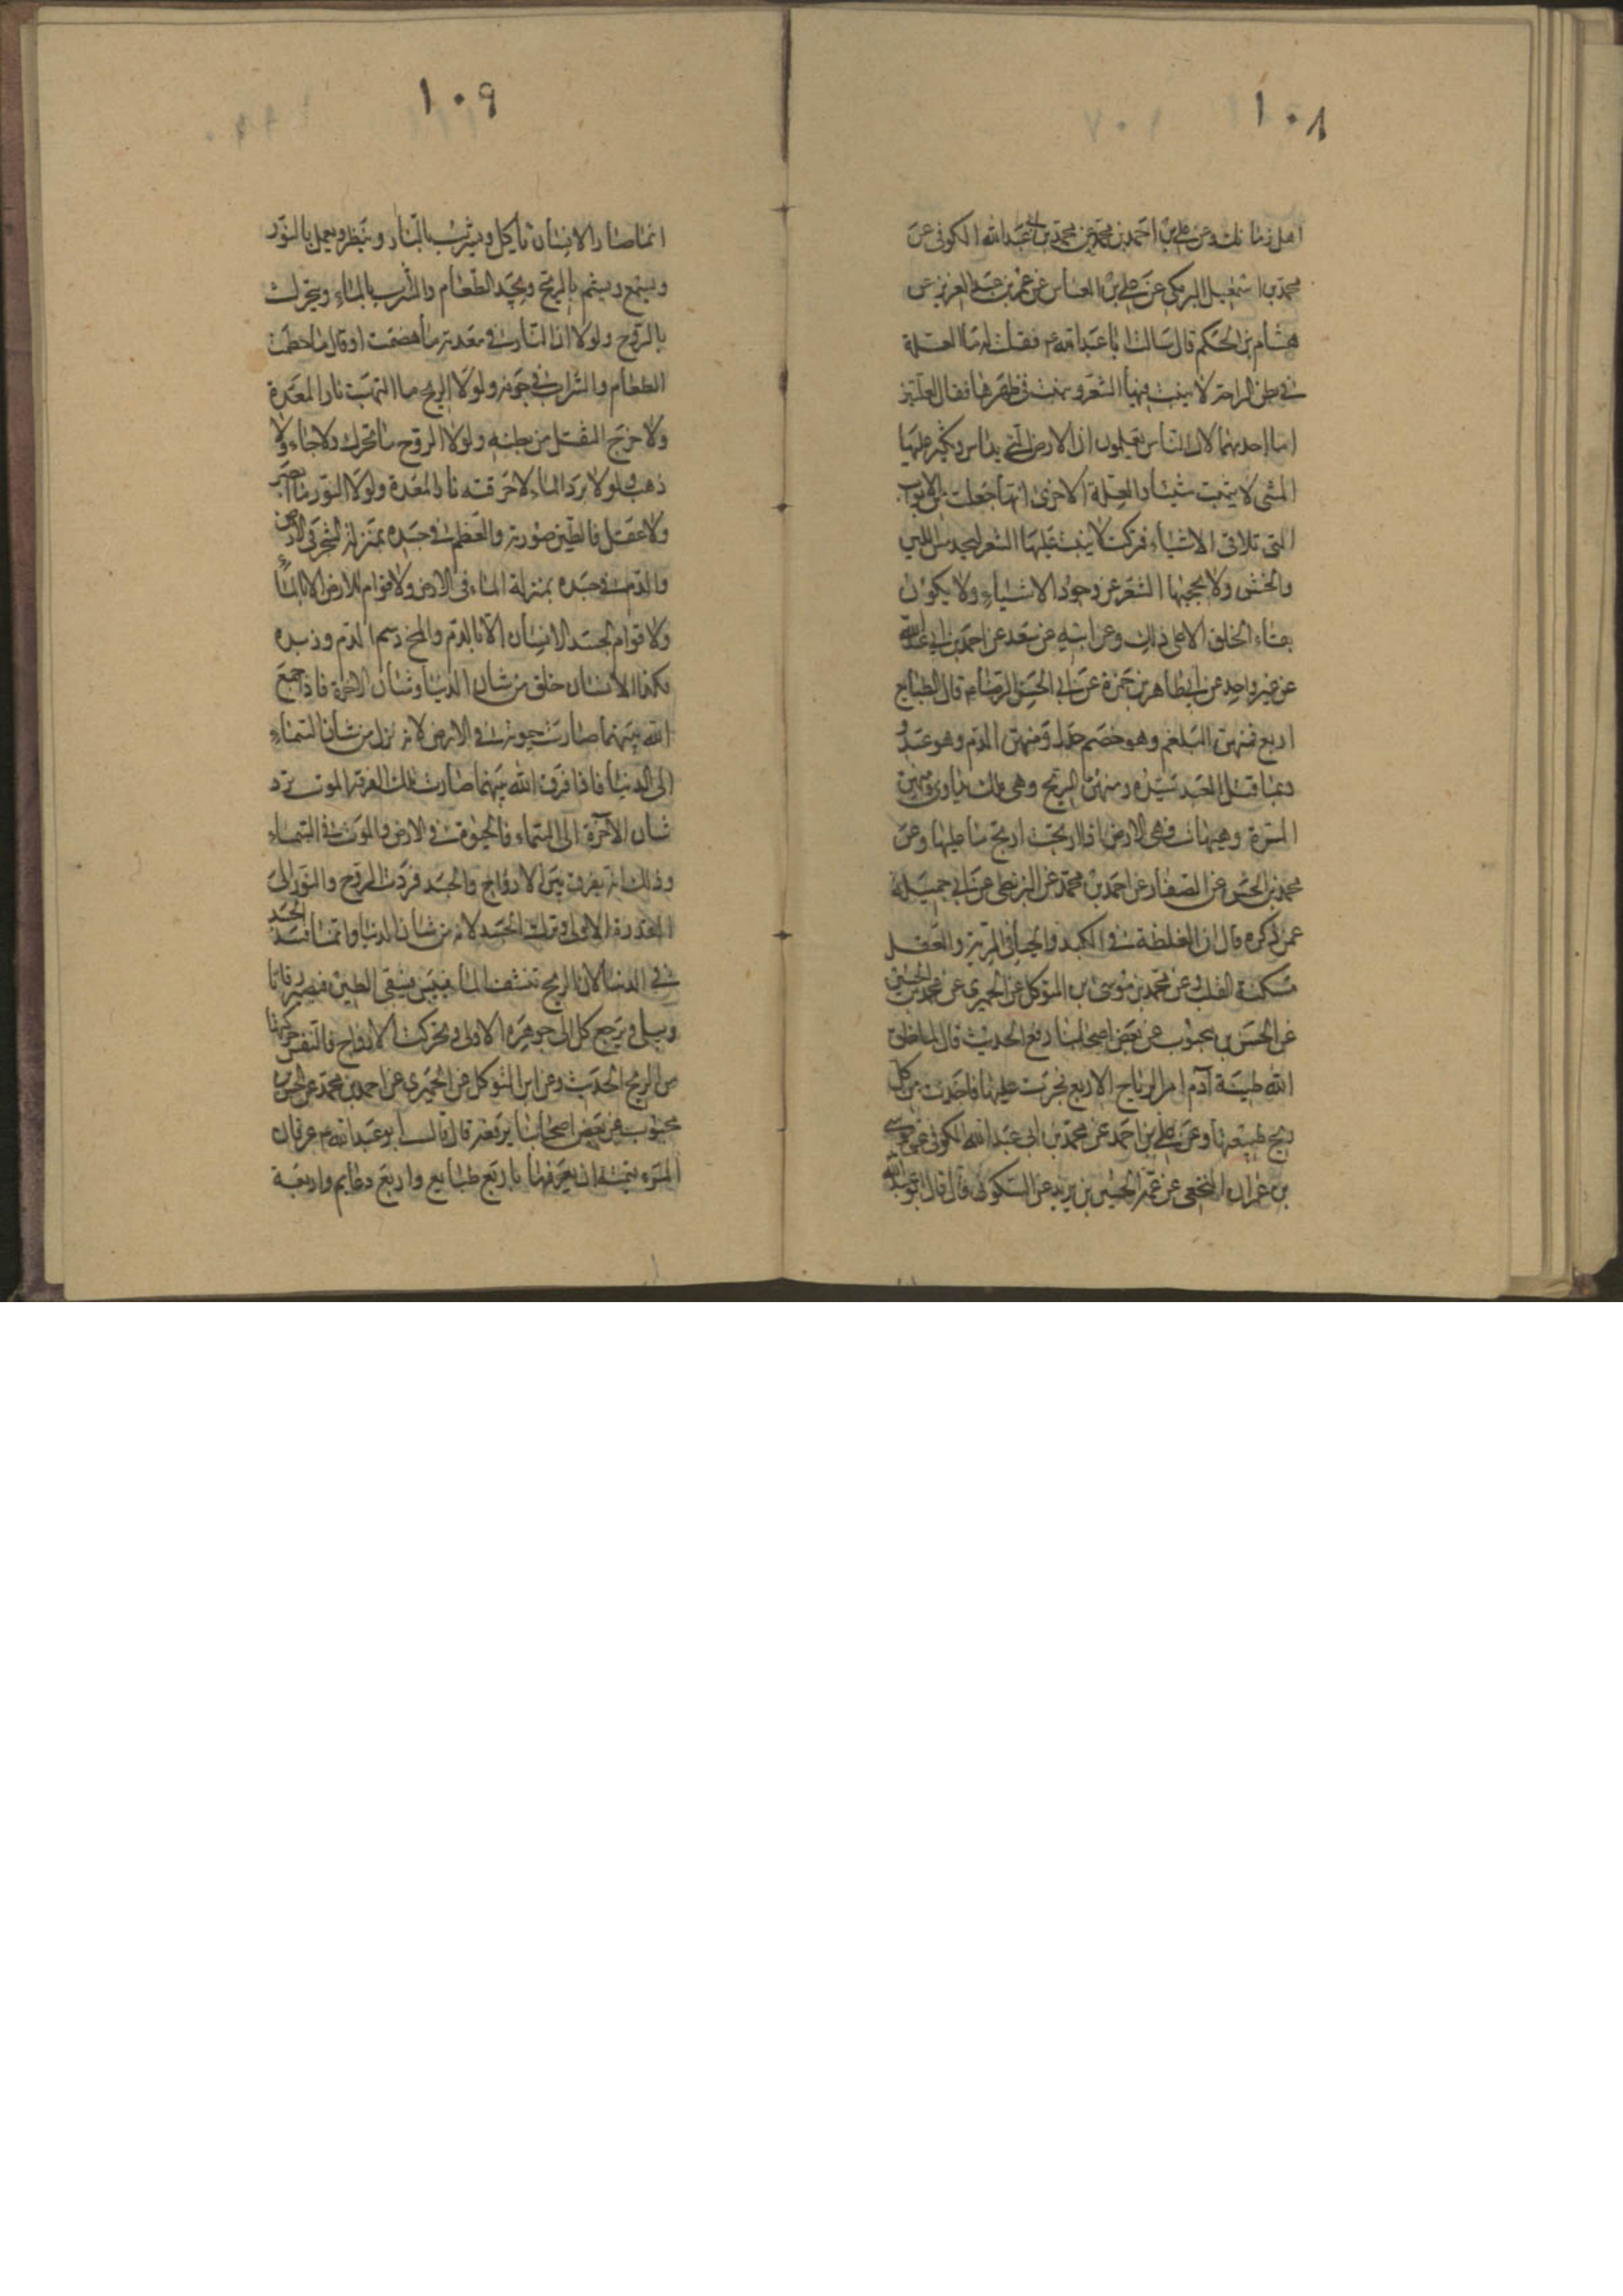 ١٠٨
اهل زمانك وعن علي بن احمد بن محمد عن محمد بن ابي عبد الله الكوفي عن
محمد بن اسمعيل البرمكي عن علي بن العباس عن عمر بن عبد العزيز عن
هشام بن الحكم قال سالت ابا عبد الله ع فقلت له ما العلة
في بطن الراحة لا ينبت فيها الشعر وينبت في ظهرها فقال لعلتين
اما احديهما لان الناس يعلمون ان الارض التي يداس ويكثر عليها
المشي لا ينبت شيئا والعلة الاخرى انها جعلت من الابواب
التي تلاقي الاشياء فتركت لا ينبت عليها الشعر ليجد مس اللين
والخشن ولا يحجبها الشعر عن وجود الاشياء ولا يكون
بقاء الخلق الا على ذلك وعن ابيه عن سعد عن احمد بن ابي عبد الله
عن غير واحد عن ابي طاهر بن حمزة عن ابي الحسن الرضا ع قال الطبايع
اربع فمنهن البلغم وهو خصم جدل ومنهن الدم وهو عبد
وربما قتل العبد سيده ومنهن الريح وهي ملك يداري ومنهن
المرة وهيهات هي الارض اذا ارتجت ارتج ما عليها وعن
محمد بن الحسن عن الصفار عن احمد بن محمد عن البزنطي عن ابي جميلة
عمن ذكره قال ان الغلظة في الكبد والحياء في الرية والعقل
مسكنه القلب وعن محمد بن موسى بن المتوكل عن الحميري عن محمد بن الحسين
عن الحسن بن محبوب عن بعض اصحابنا رفع الحديث قال لما خلق
الله طينة آدم امر الرياح الاربع فجرت عليها فاخذت من كل
ريح طبيعتها وعن علي بن احمد عن محمد بن ابي عبد الله الكوفي عن موسى
بن عمران النخعي عن عمه الحسين بن يزيد عن السكوني قال قال ابو عبد الله
١٠٩
انما صار الانسان ياكل ويشرب بالنار وينظر ويعمل بالنور
ويسمع ويشم بالريح ويجد الطعام والشراب بالماء ويتحرك
بالروح ولولا ان النار في معدته ما هضمت او قال ما حطمت
الطعام والشراب في جوفه ولولا الريح ما التهبت نار المعدة
ولا خرج الثفل من بطنه ولولا الروح ما تحرك ولا جاء ولا
ذهب ولولا برد الماء لاحرقته نار المعدة ولولا النور ما ابصر
ولا عقل فالطين صورته والعظم في جسده بمنزلة الشجر في الارض
والدم في جسده بمنزلة الماء في الارض ولا قوام للارض الا بالماء
ولا قوام لجسد الانسان الا بالدم والمخ دسم الدم وزبده
هكذا الانسان خلق من شان الدنيا وشان الاخرة فاذا جمع
الله بينهما صارت حيوته في الارض لانه نزل من شان السماء
الى الدنيا فاذا فرق الله بينهما صارت تلك الفرقة الموت ترد
شان الآخرة الى السماء فالحيوة في الارض والموت في السماء
وذلك انه يفرق بين الارواح والجسد فردت الروح والنور الى
القدرة الاولى وترك الجسد لانه من شان الدنيا وانما فسد الجسد
في الدنيا لان الريح تنشف الماء فييبس فيبقى الطين فيصير رفاتا
ويبلى ويرجع كل الى جوهره الاولى وتحركت الارواح فالنفس حركتها
من الريح الحديث وعن ابن المتوكل عن الحميري عن احمد بن محمد عن الحسن بن
محبوب عن بعض اصحابنا يرفعه قال قال ابو عبد الله ع عرفان
المرء نفسه ان يعرفها باربع طبايع واربع دعايم واربعة